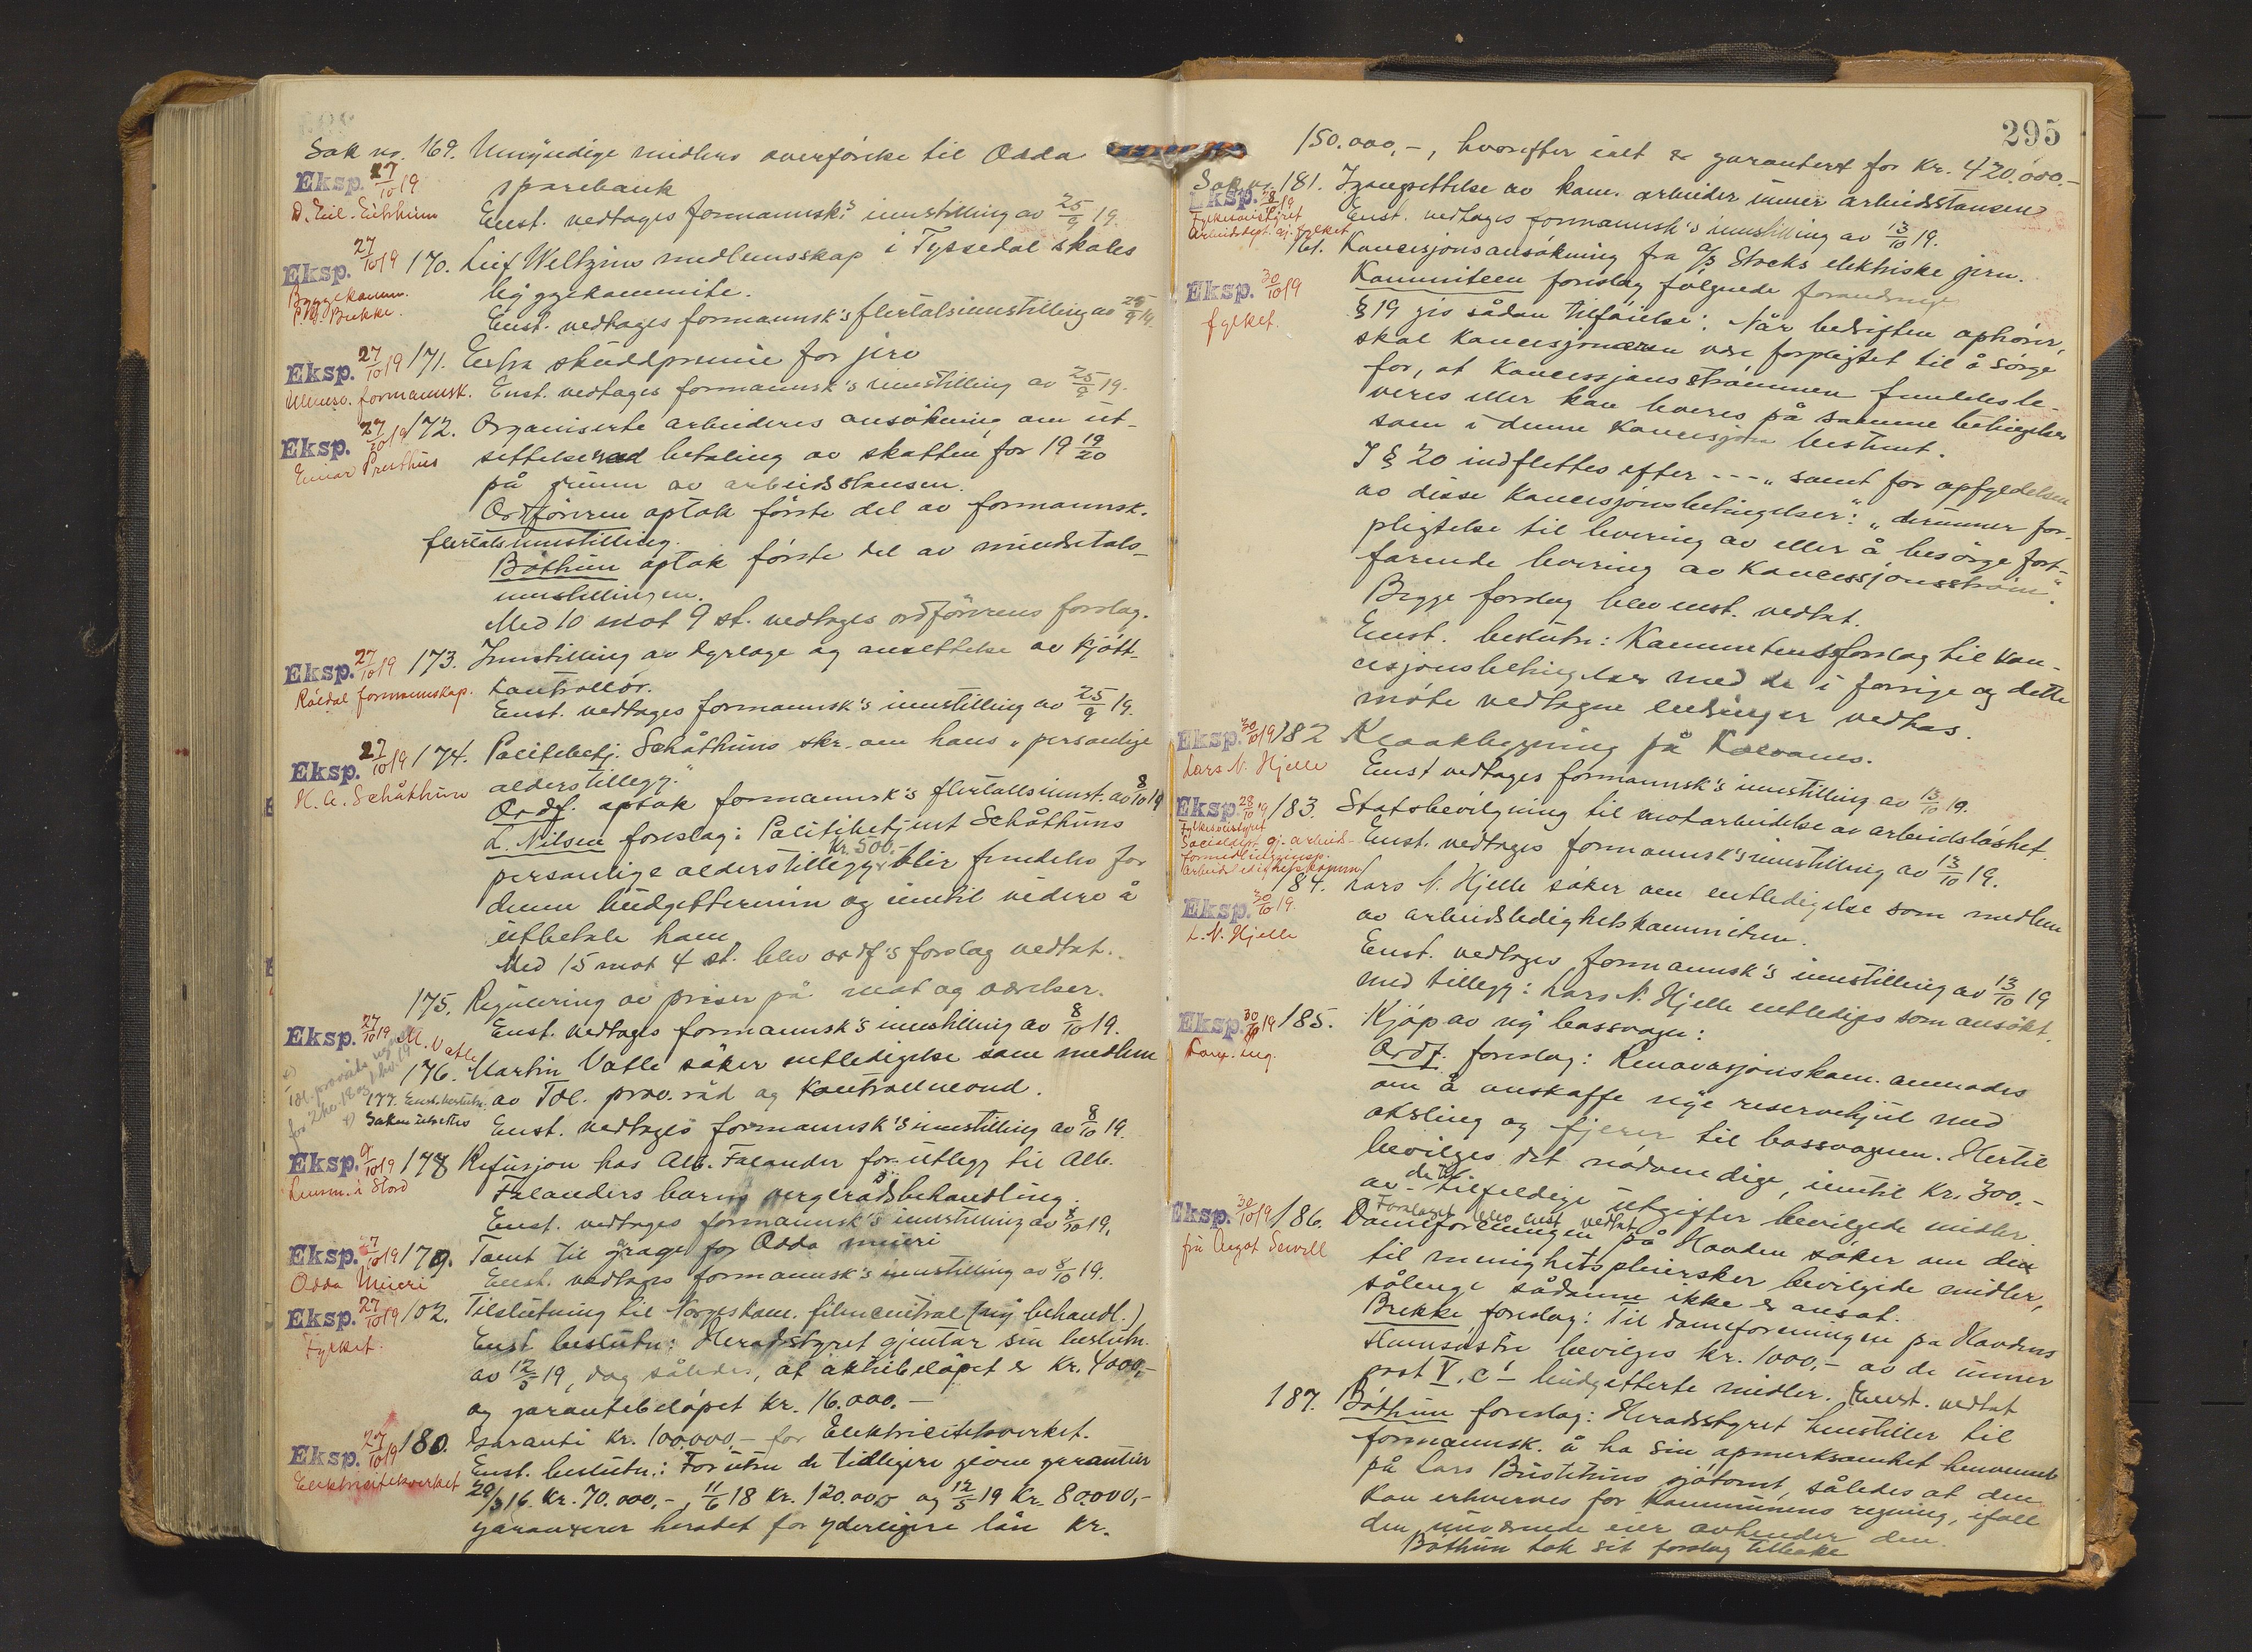 Sak nr. 169. Umyndige midlers overförelse til Odda
Eksp. 27/10 19
sparebank
D. Eil. Eitrheim
Enst. vedtages formannsk's innstilling av 25/9 19.
Eksp. 27/10 19 170. Leif Weltzins medlemsskap i Tyssedal skoles
Byggekomm.
byggekommite.
Brekke.
Enst. vedtages formannsk's flertalsinnstilling av 25/9 19.
Eksp. 27/10 19 171. Extra skuddpremie for jerv
Ullensv. formannsk. Enst. vedtages formannsk's innstilling av 25/9 19.
Eksp. 27/10 19 172. Organiserte arbeideres ansökning om ut-
Einar Presthus
settelse med betaling av skatten for 19 19/20
på grunn av arbeidsstansen.
Ordföreren optok förste del av formannsk.
flertalsinnstilling.
Böthun optok förste del av mindretals-
innstillingen.
Med 10 mot 9 st. vedtages ordförerens forslag.
Eksp. 27/10 19 173. Innstilling av dyrlæge og ansettelse av kjött-
Röldal formannskap.
kontrollör.
Enst. vedtages formannsk's innstilling av 25/9 19.
Eksp. 27/10 19 174. Politibetj. Schåthuns skr. om hans "personlige
H. A. Schåthun
alderstillegg."
Ordf. optok formannsk's flertallsinnst. av 8/10 19
L. Nilsen foreslag: Politibetjent Schåthuns
kr. 500.-
personlige alderstillegg blir fremdeles for
denne budgettermin og inntil videre å
utbetale ham
Med 15 mot 4 st. blev ordf's forslag vedtat.
175. Regulering av priser på mat og værelser.
Eksp. 27/10 19
Enst. vedtages formannsk's innstilling av 8/10 19.
M. Vatle
176. Martin Vatle söker entledigelse som medlem
av Töl. prov. råd og kontrollnevnd.
177. Enst. beslutn.
Saken utsettes
Enst. vedtages formannsk's innstilling av 8/10 19.
Eksp. 9/10 19 178 Refusjon hos Alb. Falander for utlegg til Alb.
Lensm. i Stord
Falanders barns vergerådsbehandling.
Enst. vedtages formannsk's innstilling av 8/10 19.
Eksp. 27/10 19 179. Tomt til garage for Odda mieri
Odda Mieri
Enst. vedtages formannsk's innstilling av 8/10 19.
Eksp. 27/10 19 102. Tilslutning til Norges kom. filmcentral (ny behandl.)
Fylket.
Enst. beslutn: Heradsstyret gjentar sin beslutn.
av 12/5 19, dog således, at aktiebelöpet er kr. 4000,-
og garantibelöpet kr. 16.000.-
Eksp. 27/10 19 180. Garanti kr. 100.000- for Elektricitetsverket.
Elektricitetsverket
Enst. beslutn.: Foruten de tidligere givne garantier
29/3 16. kr. 70.000,-, 11/6 18 kr. 120.000 og 12/5 19 kr. 80.000,-
garanterer heradet for yderligere lån kr.
295
150.000,-, hvorefter ialt er garantert for kr. 420.000.-
Sak nr. 181. Igangsettelse av kom. arbeider under arbeidsstansen
Eksp. 28/10 19
Enst. vedtages formannsk's innstilling av 13/10 19.
161. Koncesjonsansökning fra A/S Stocks elektriske jern.
Eksp. 30/10 19
fylket.
Kommiteen foreslog fölgende forandringer
§ 19 gis sådan tilföielse: Når bedriften ophörer,
skal koncesjonæren være forpligtet til å sörge
for, at koncessjonsströmmen fremdeles le-
veres eller kan leveres på samme betingelser
som i denne koncesjon bestemt.
I § 20 indflettes efter --- "samt for opfyldelsen
av disse koncesjonsbetingelser: "derunder for-
pligtelse til levering av eller å besörge fort-
farende levering av koncessjonsström."
Begge forslag blev enst. vedtat.
Enst. beslutn: Kommiteens forslag til kon-
cesjonsbetingelser med de i forrige og dette
möte vedtagne endringer vedtas.
Eksp. 30/10 19 182 Kloakbygning på Kalvanes.
Lars N. Hjelle
Enst vedtages formannsk's innstilling av 13/10 19.
Eksp. 28/10 19 183. Statsbevilgning til motarbeidelse av arbeidslöshet.
Enst. vedtages formannsk's innstilling av 13/10 19.
184. Lars N. Hjelle söker om entledigelse som medlem
Eksp. 30/10 19.
L. N. Hjelle
av arbeidsledighetskommiteen.
Enst. vedtages formannsk's innstilling av 13/10 19
med tillegg: Lars N. Hjelle entlediges som ansökt.
Eksp. 30/10 19 185. Kjöp av ny bossvogn:
Ordf. foreslog: Renovasjonskom. anmodes
om å anskaffe nye reservehjul med
aksling og fjerer til bossvognen. Hertil
bevilges det nödvendige, inntil kr. 300.-
av de til tilfeldige utgifter bevilgede midler.
Forslaget blev enst. vedtat
Eksp. 30/10 19 186. Dameforeningen på Hovden söker om den
fru Sewell
til menighetspleiersker bevilgede midler,
sålenge sådanne ikke er ansat.
Brekke foreslog: Til dameforeningen på Hovdens
bevilges kr. 1000,- av de under
post V. c budgetterte midler. Enst. vedtat
187. Böthun foreslog: Heradsstyret henstiller til
formannsk. å ha sin opmerksomhet henvendt
på Lars sjötomt, således at den
kan erhverves for kommunens regning, ifall
den nuværende eier avhender den.
Böthun tok sit forslag tilbake